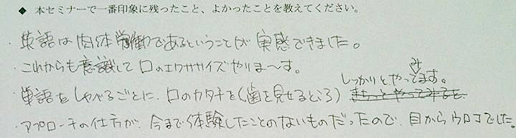 ◆ 本セミナーで一番印象に残ったこと、よかったことを教えてください。
・英語は肉体労働であるということが実感できました。
・これからも意識して口のエクササイズやりま〜す。
・英語をしゃべるごとに、口のカタチを(歯を見せるところ)しっかりとやってみます。
・アプローチの仕方が、今まで体験したことのないものだったので、目からウロコでした。